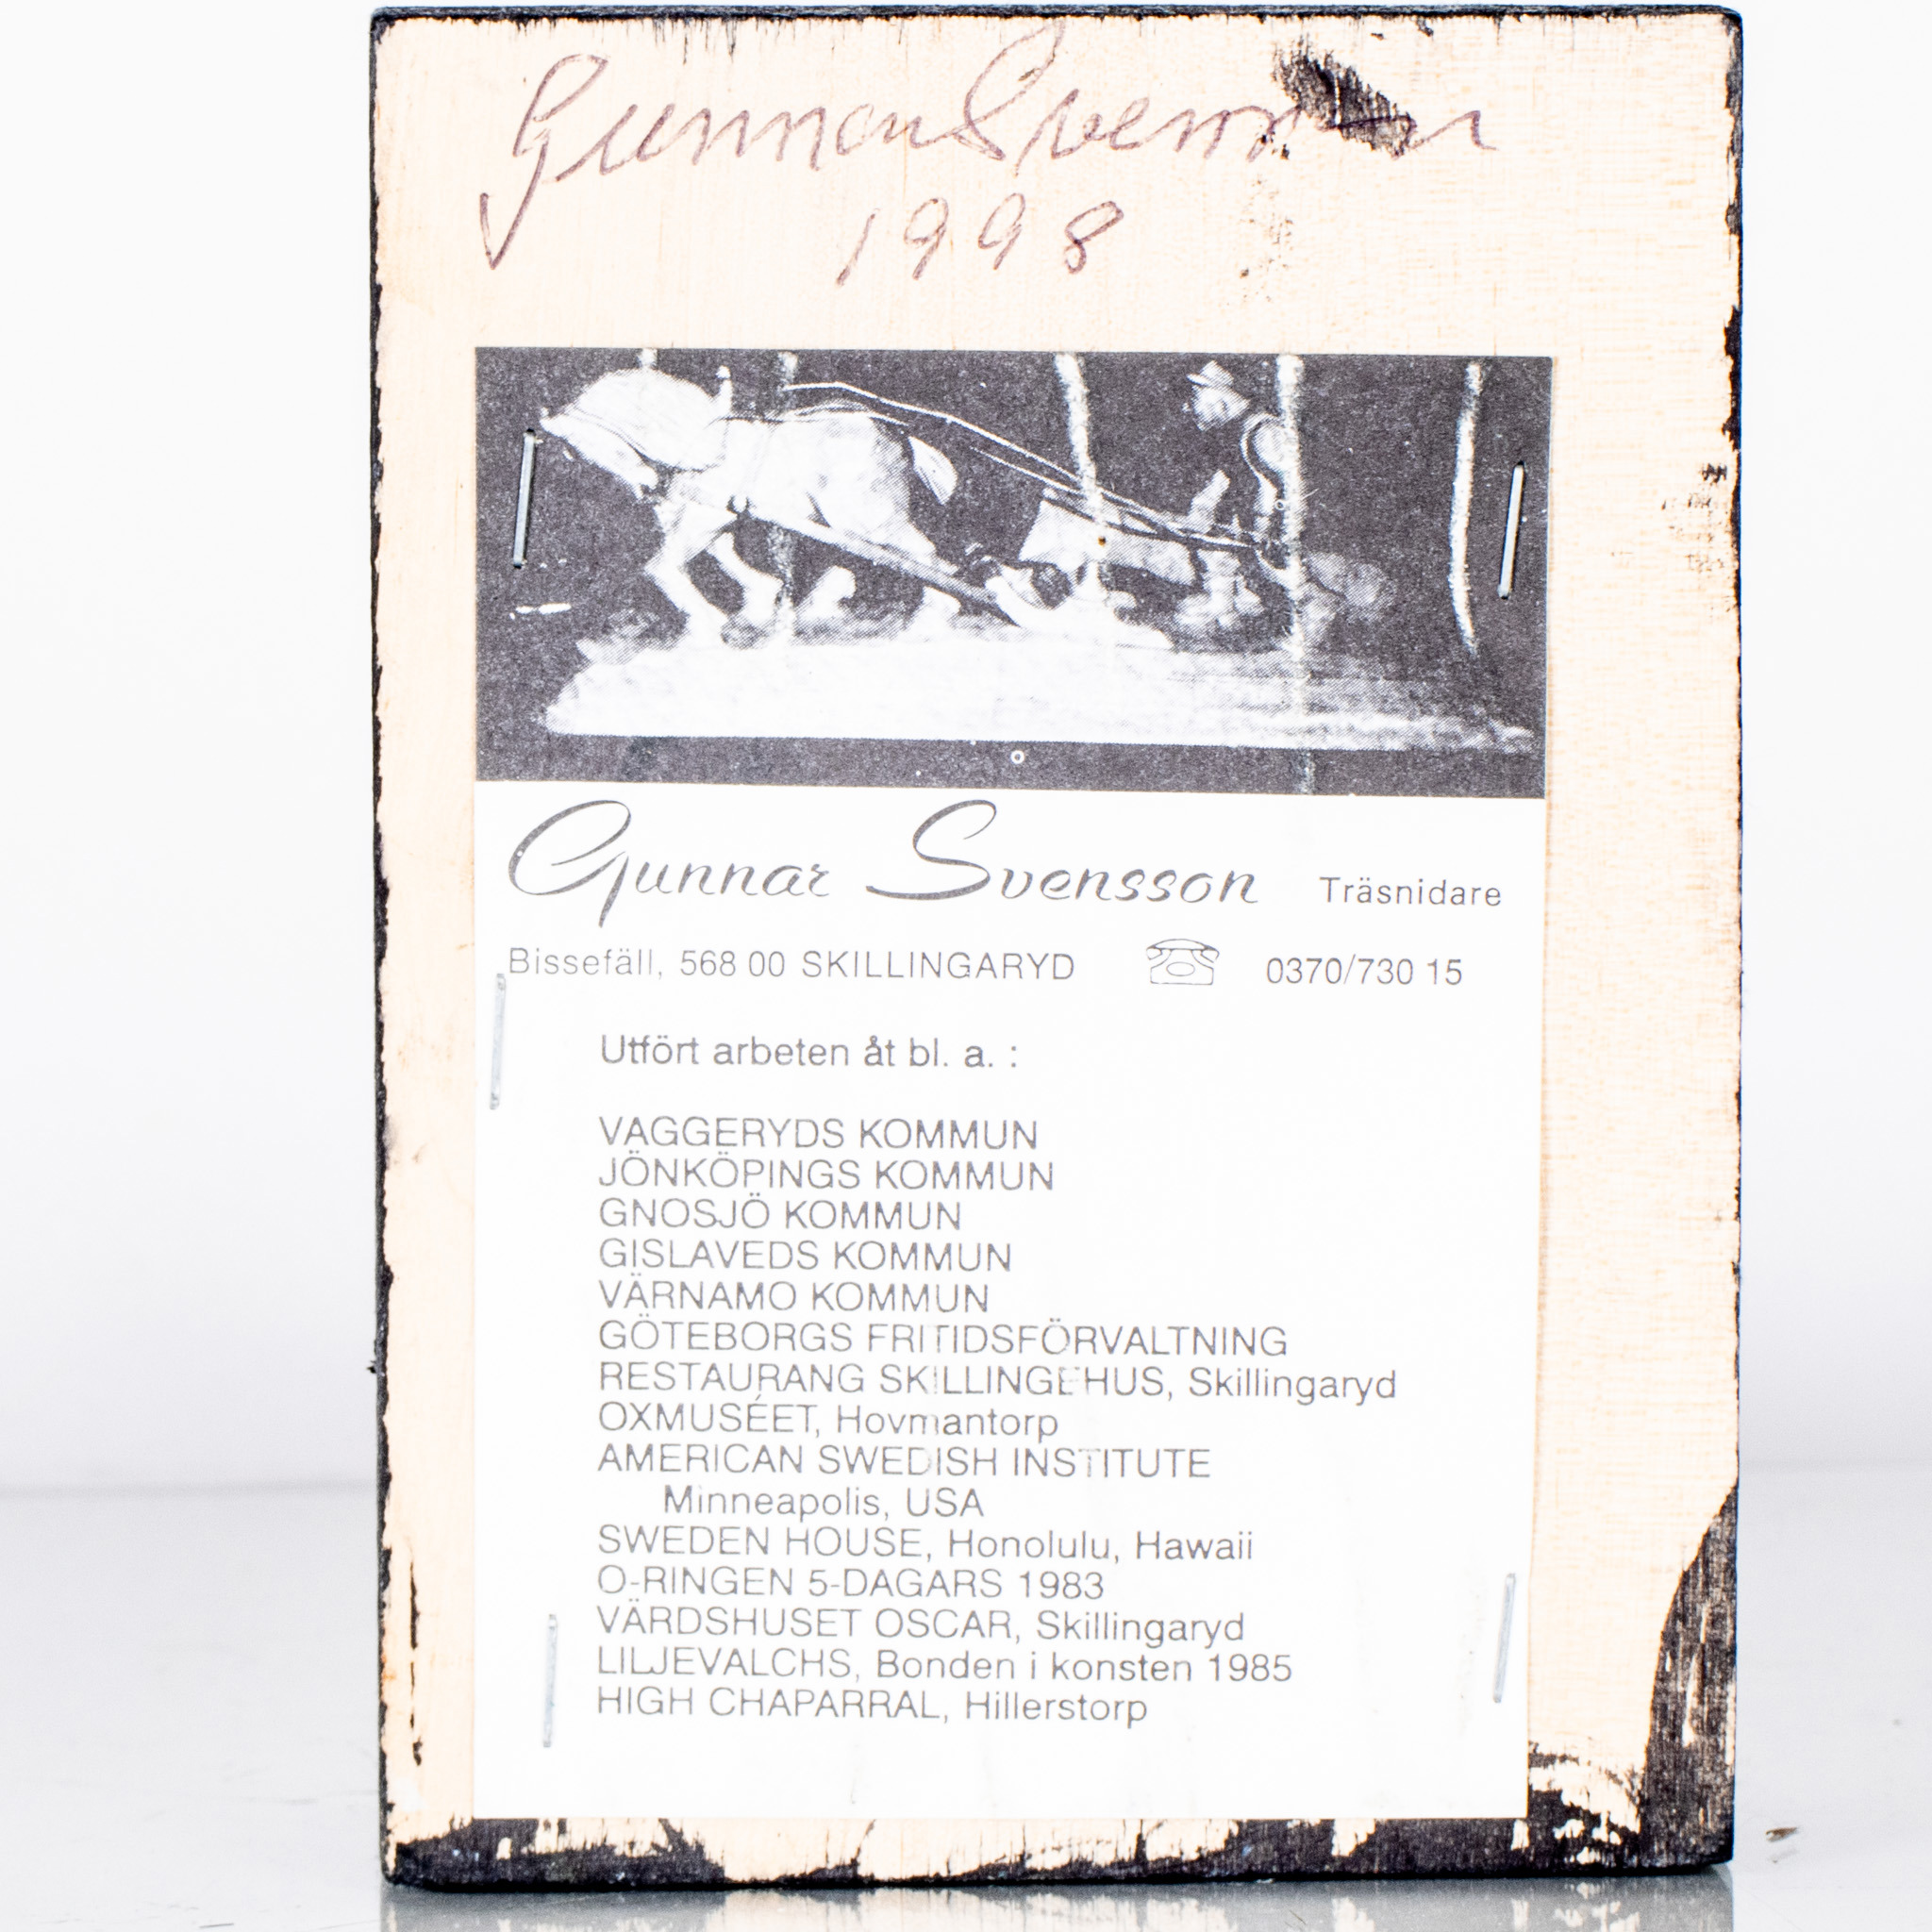 Gunnar Svensson
1998
Gunnar Svensson Träsnidare
Bissefäll, 568 00 SKILLINGARYD 0370/730 15
Utfört arbeten åt bl. a. :
VAGGERYDS KOMMUN
JÖNKÖPINGS KOMMUN
GNOSJÖ KOMMUN
GISLAVEDS KOMMUN
VÄRNAMO KOMMUN
GÖTEBORGS FRITIDSFÖRVALTNING
RESTAURANG SKILLINGEHUS, Skillingaryd
OXMUSÉET, Hovmantorp
AMERICAN SWEDISH INSTITUTE
Minneapolis, USA
SWEDEN HOUSE, Honolulu, Hawaii
O-RINGEN 5-DAGARS 1983
VÄRDSHUSET OSCAR, Skillingaryd
LILJEVALCHS, Bonden i konsten 1985
HIGH CHAPARRAL, Hillerstorp